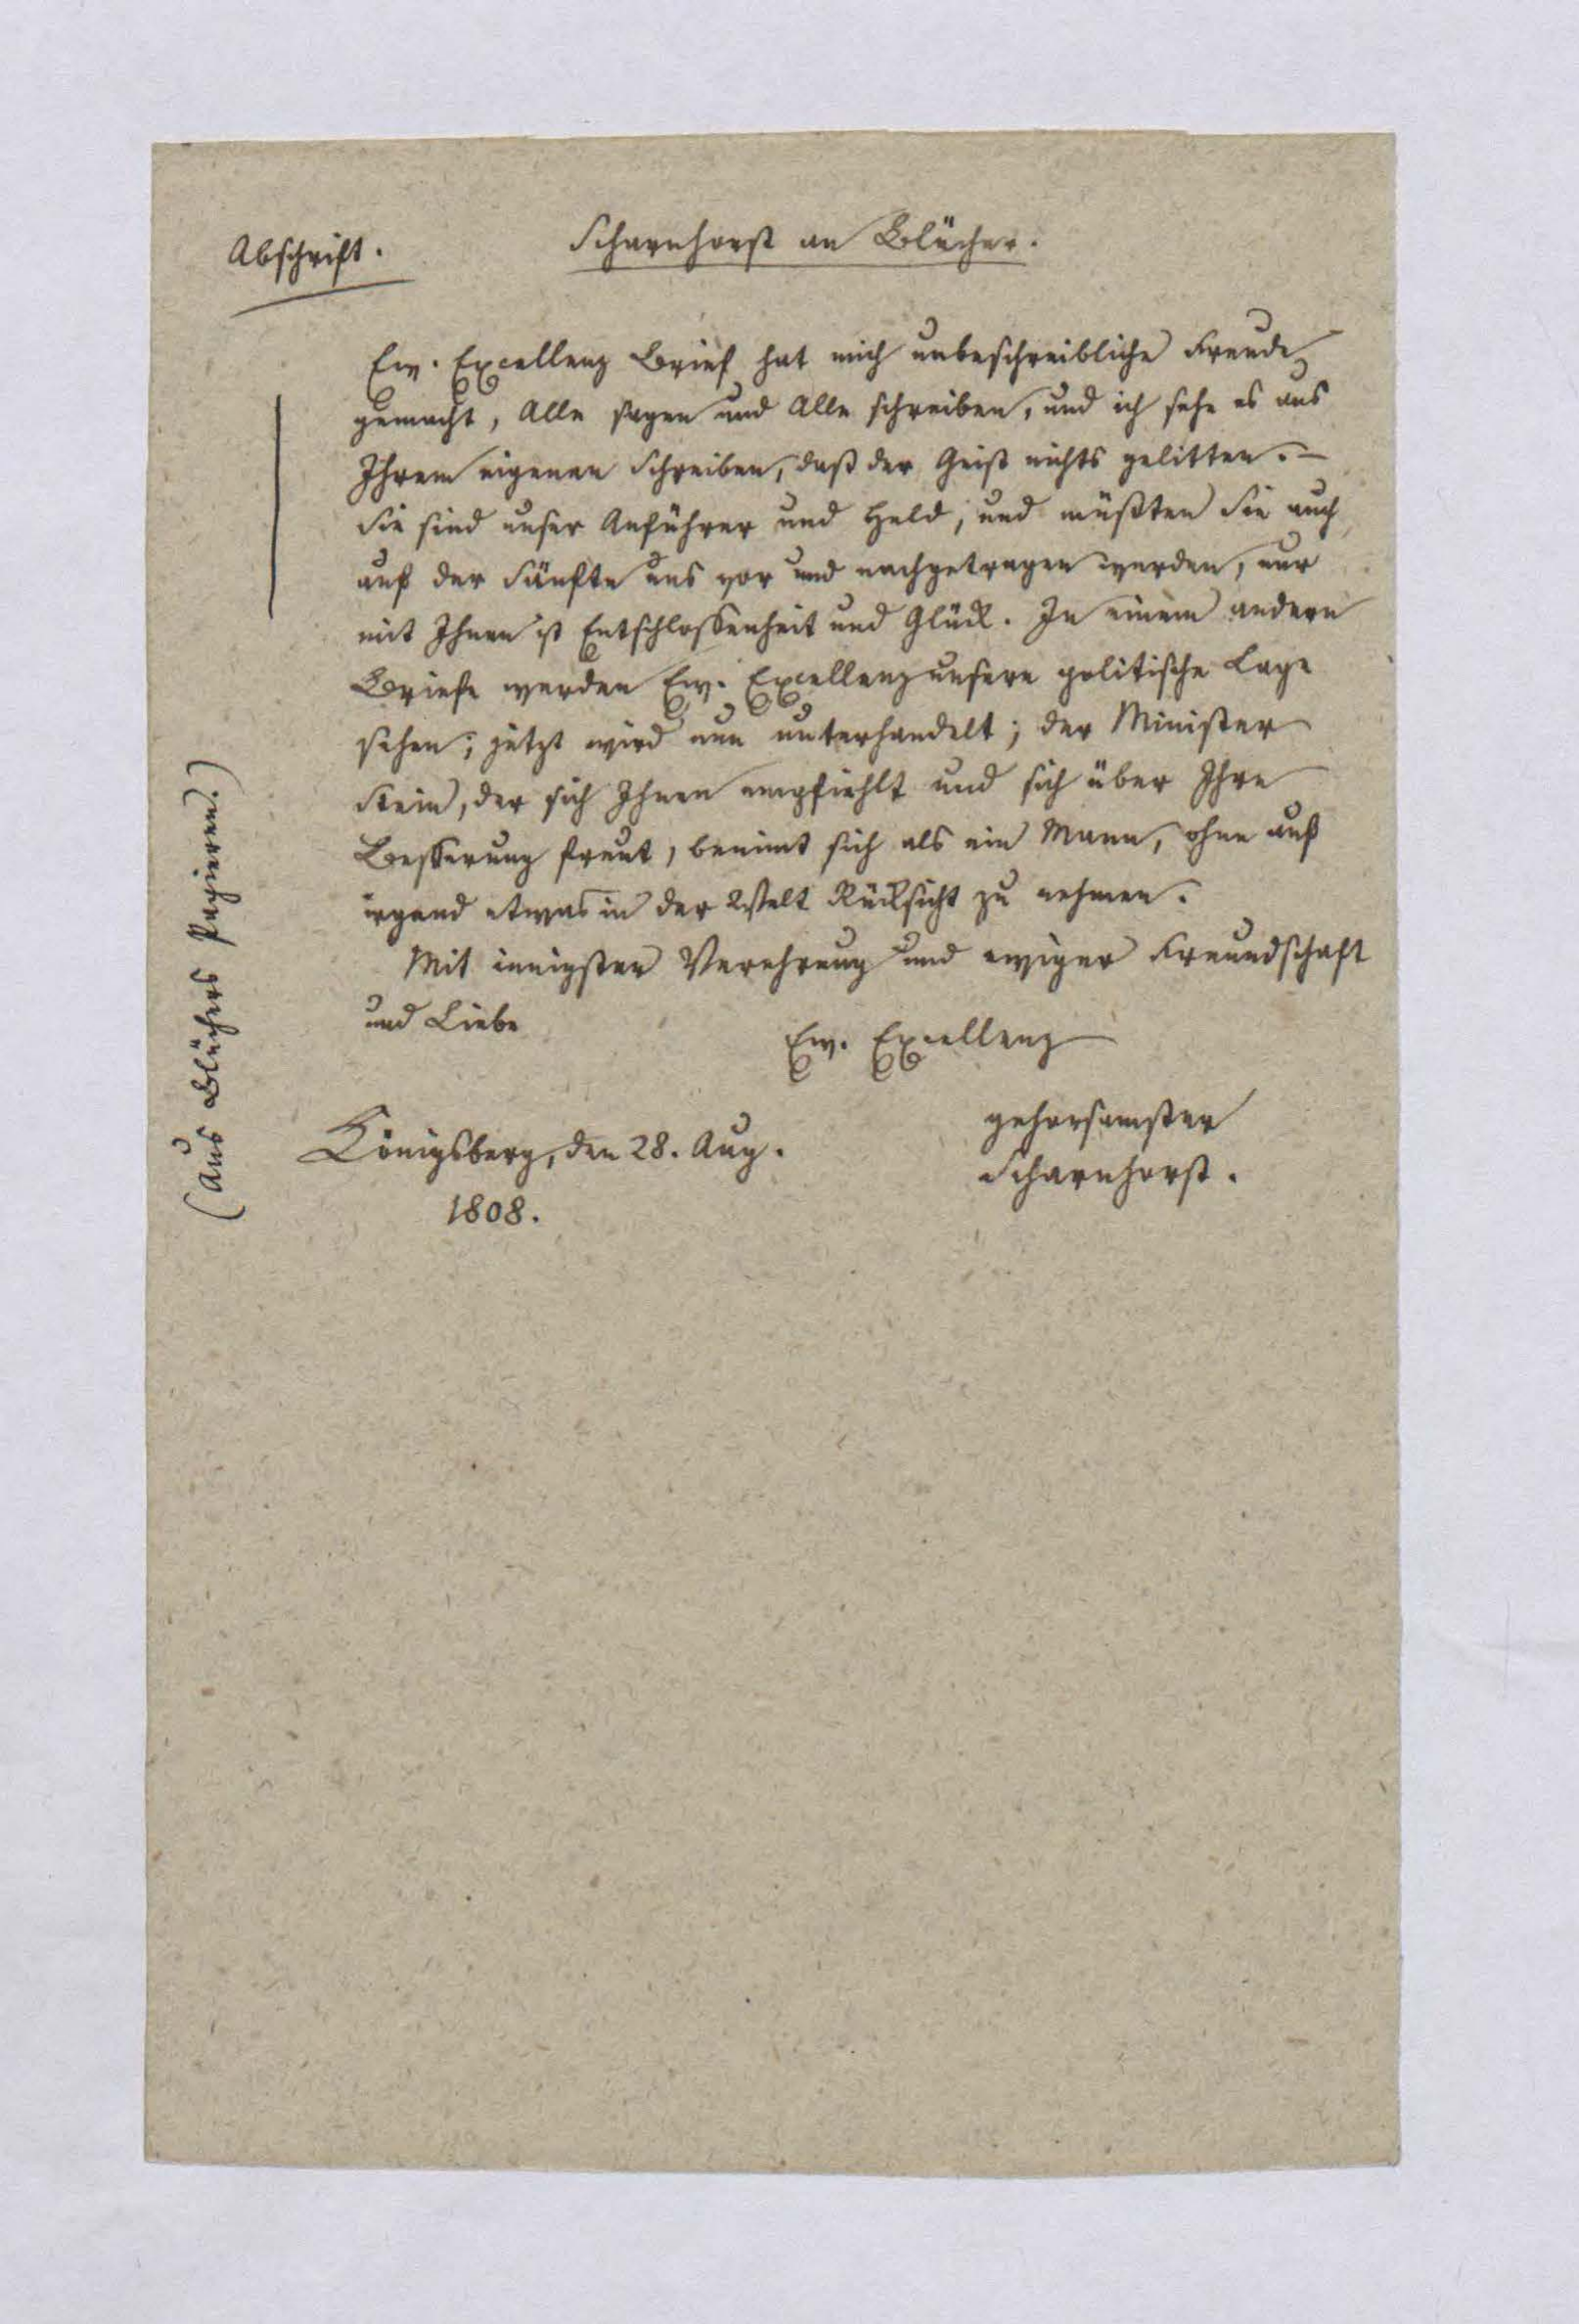 Abschrift.
Scharnhorst an Blücher.
Ew. Excellenz Brief hat mich unbeschreibliche Freude
gemacht, Alle sagen und Alle schreiben, und ich sehe es aus
Ihrem eigenen Schreiben, daß der Geist nichts gelitten. –
Sie sind unser Anführer und Held, und müßten Sie auch
auf der Sänfte uns vor und nachgetragen werden, nur
mit Ihnen ist Entschlossenheit und Glück. In einem andern
Briefe werden Ew. Excellenz unsere politische Lage
sehen; jetzt wird nun unterhandelt; der Minister
Stein, der sich Ihnen empfiehlt und sich über Ihre
Besserung freut, benimt sich als ein Mann, ohne auf
irgend etwas in der Welt Rücksicht zu nehmen.
Mit innigster Verehrung und ewiger Freundschaft
und Liebe
Ew. Excellenz
gehorsamster
Scharnhorst.
Königsberg, den 28. Aug.
1808.
(Aus Blüchers Papieren.)